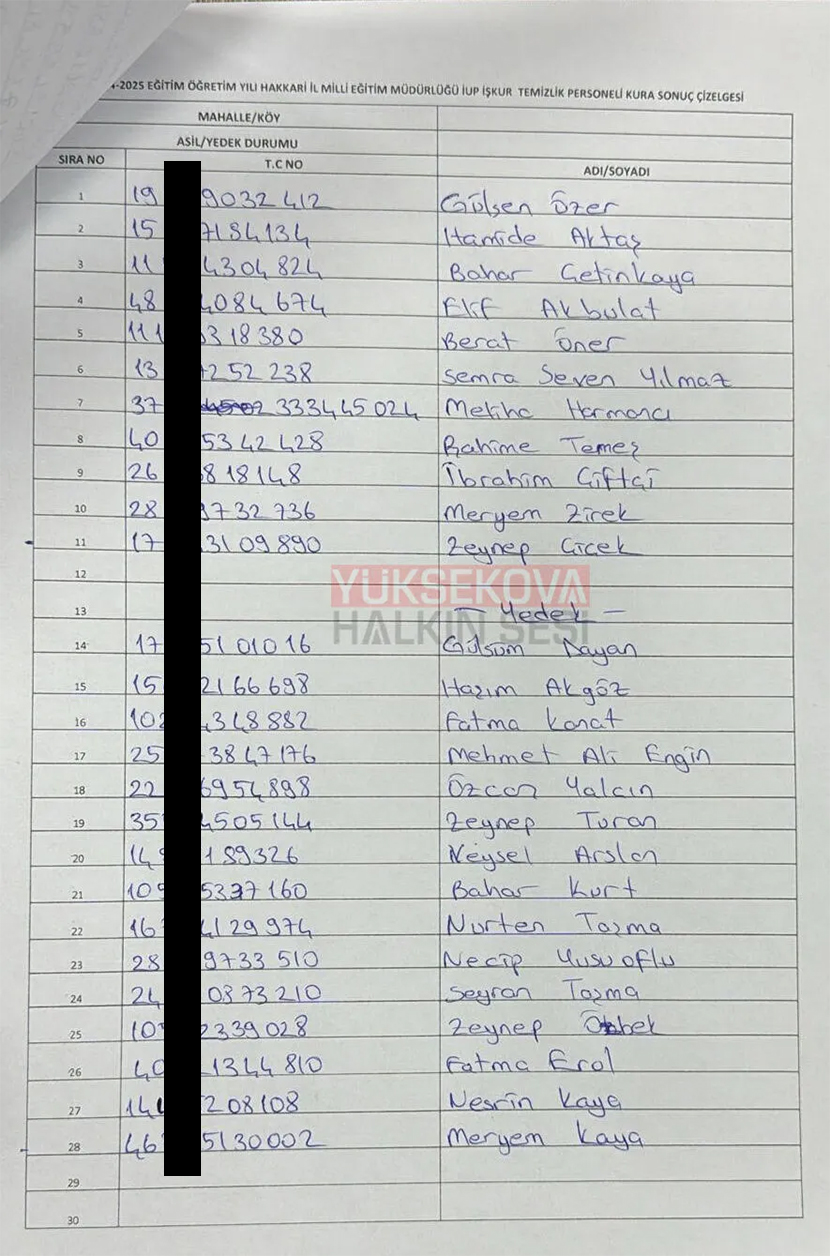 4-2025 EĞİTİM ÖĞRETİM YILI HAKKARİ İL MİLLİ EĞİTİM MÜDÜRLÜĞÜ İUP İŞKUR TEMİZLİK PERSONELİ KURA SONUÇ ÇİZELGESİ
MAHALLE/KÖY
ASİL/YEDEK DURUMU
SIRA NO T.C NO ADI/SOYADI
1 19 9032412 Gülşen Özer
2 15 7184134 Hamide Aktaş
3 11 4304824 Bahar Çetinkaya
4 48 4084674 Elif Akbulat
5 111 318380 Berat Öner
6 13 252238 Semra Seven Yılmaz
7 37 333445024 Meliha Harmancı
8 40 5342428 Rahime Temeş
9 26 818148 İbrahim Çiftçi
10 28 732736 Meryem Zirek
11 17 3109890 Zeynep Çiçek
12
13 - Yedek -
YÜKSEKOVA
HALKIN SESİ
14 17 5101016 Gülsüm Dayan
15 15 2166698 Hazım Akgöz
16 102 348882 Fatma Kanat
17 25 3847176 Mehmet Ali Engin
18 22 6954898 Özcan Yalçın
19 35 4505144 Zeynep Turan
20 14 189326 Veysel Arslan
21 10 5337160 Bahar Kurt
22 16 4129974 Nurten Tazma
23 28 9733510 Necip Yusufoğlu
24 24 0373210 Seyran Tazma
25 10 2339028 Zeynep
26 40 1344810 Fatma Erol
27 14 208108 Nesrin Kaya
28 46 5130002 Meryem Kaya
29
30